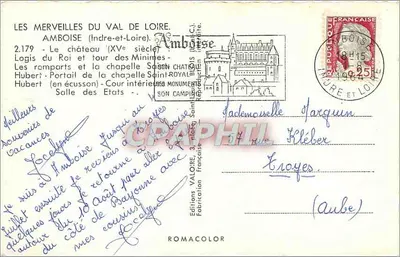 LES MERVEILLES DU VAL DE LOIRE.
AMBOISE (Indre-et-Loire).
2.179 - Le château (XVe siècle)
Logis du Roi et tour des Minimes -
Les remparts et la chapelle Saint
Hubert - Portail de la chapelle Saint
Hubert (en écusson) - Cour intérieure
Salle des Etats.
Amboise
SON CHATEAU
ROYAL
SES MONUMENTS
SON CAMPING
REPUBLIQUE
FRANÇAISE
0,25
INDRE ET LOIRE
Meilleurs
souvenirs de
vacances
Jocelyne
Je suis à Amboise jusqu'au
juillet ensuite je reviens à Troyes
quelques jours. Je retourne
autour du 10 Août pour aller
du côté de Bayonne avec
mes cousins
Jocelyne
Editions VALOIRE,
Fabrication Française
Mademoiselle
Kléber
Troyes
(Aube)
PHCARTE
ROMACOLOR